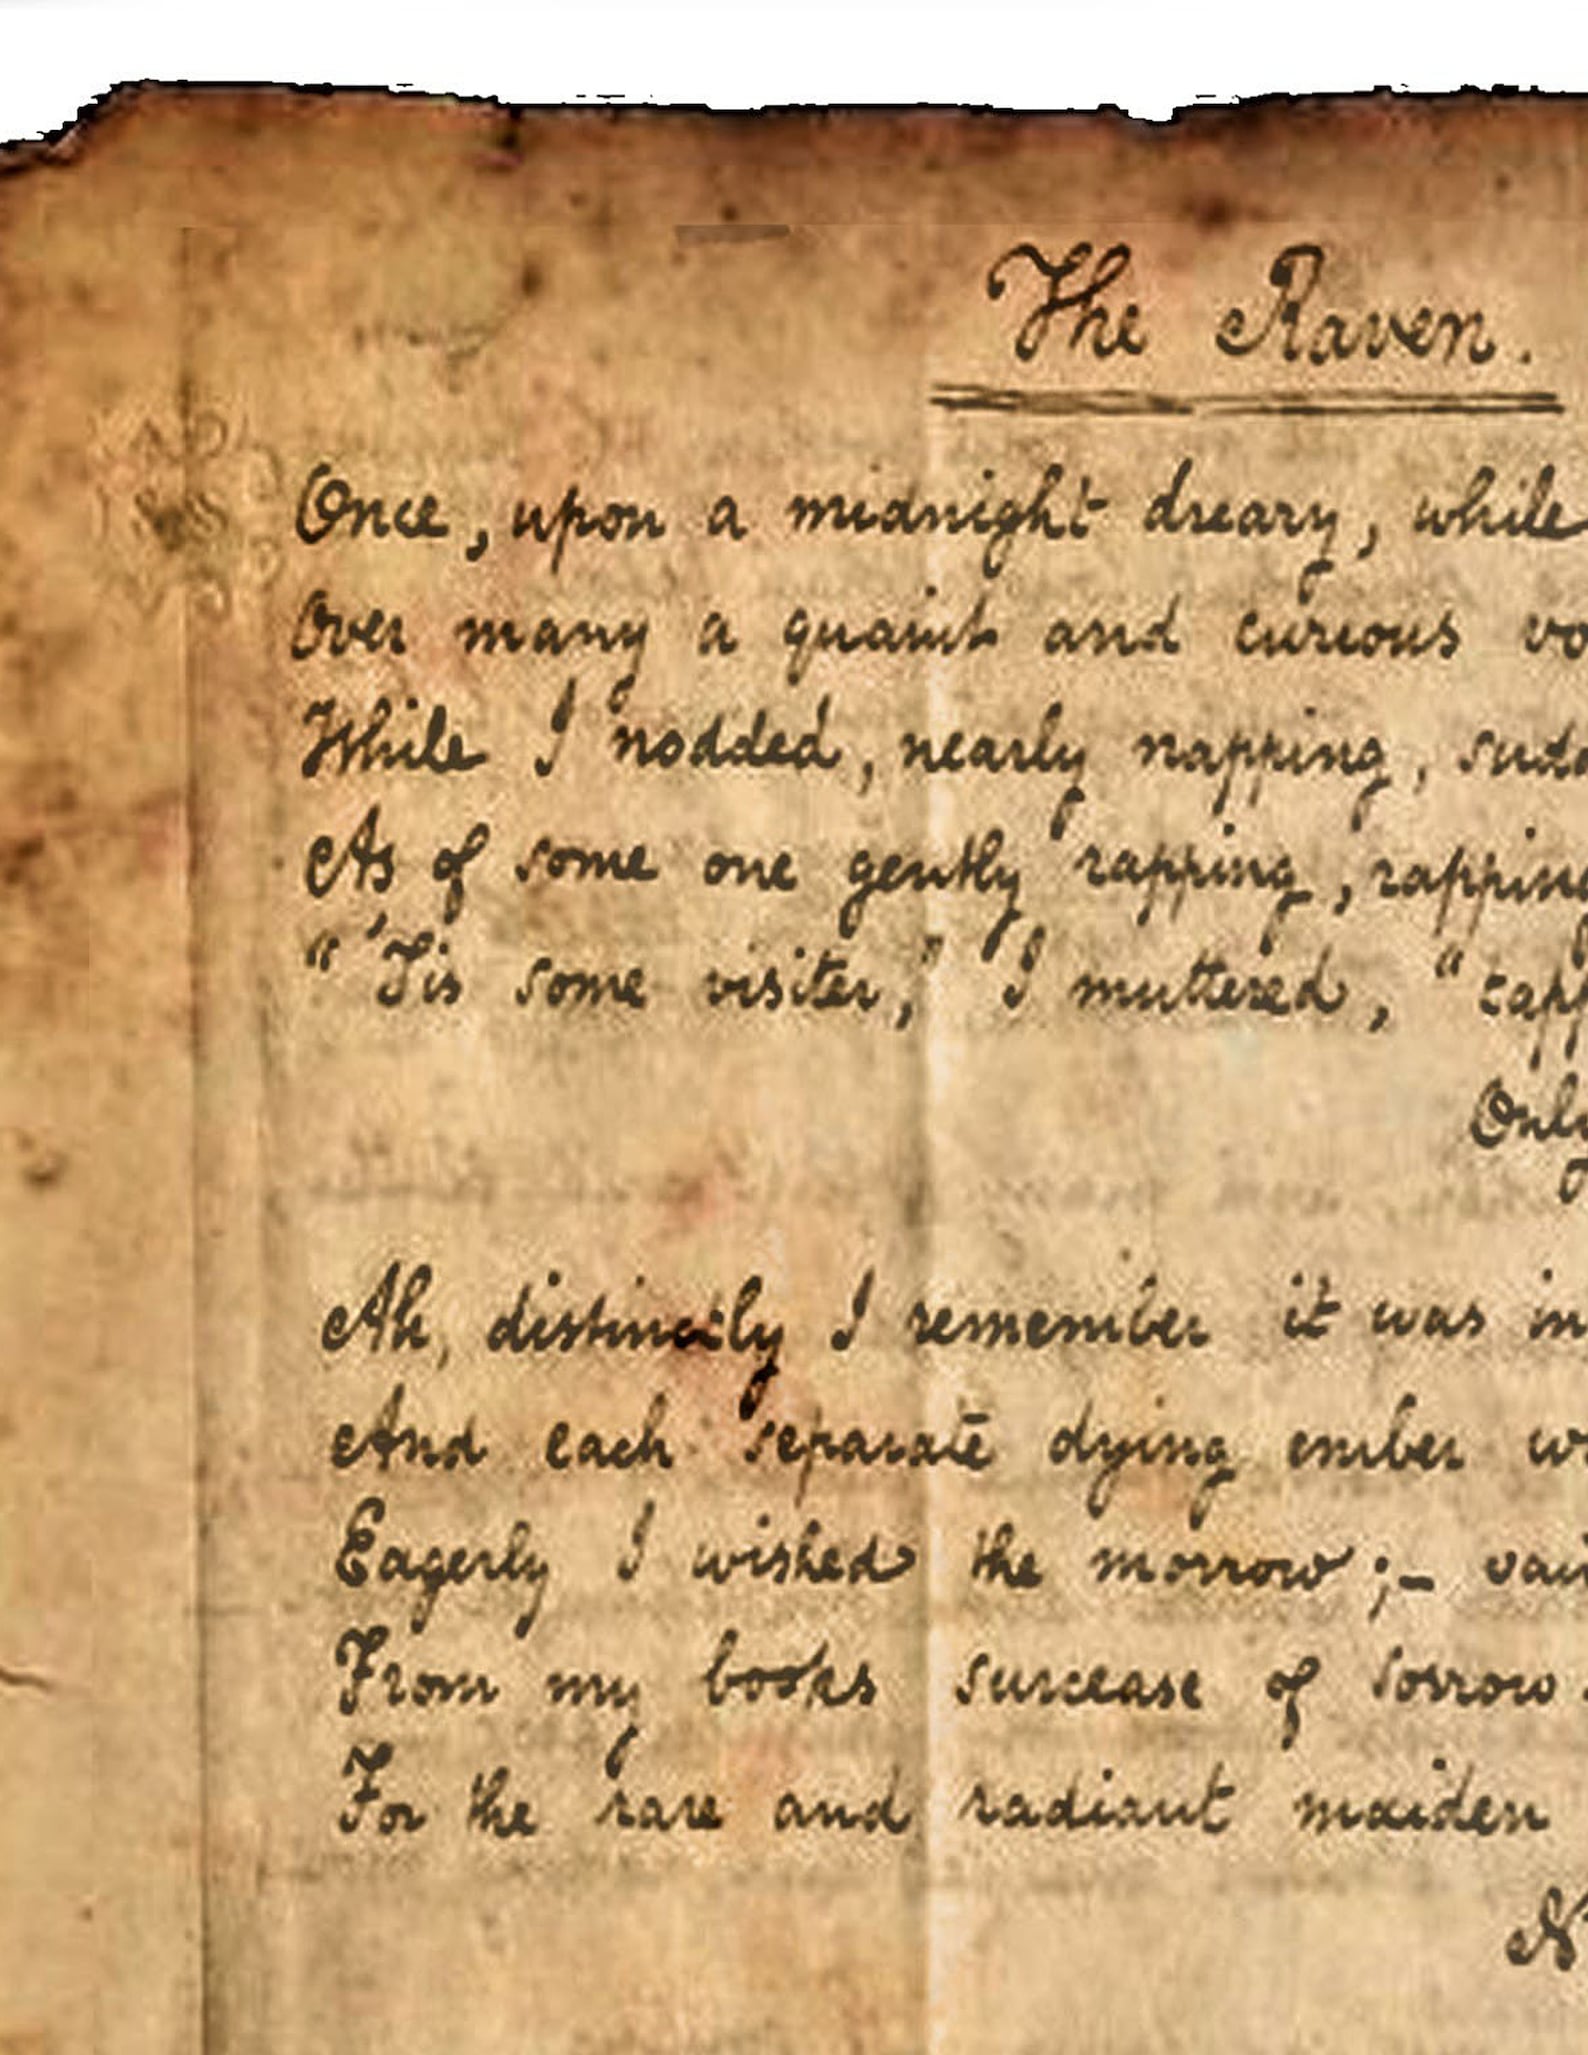 The Raven.
Once, upon a midnight dreary, while
Over many a quaint and curious vo
While I nodded, nearly napping, sudd
As of some one gently rapping, rapping
"'Tis some visiter," I muttered, "tapp
Only
Ah, distinctly I remember it was in
And each separate dying ember w
Eagerly I wished the morrow;— vain
From my books surcease of sorrow
For the rare and radiant maiden
N